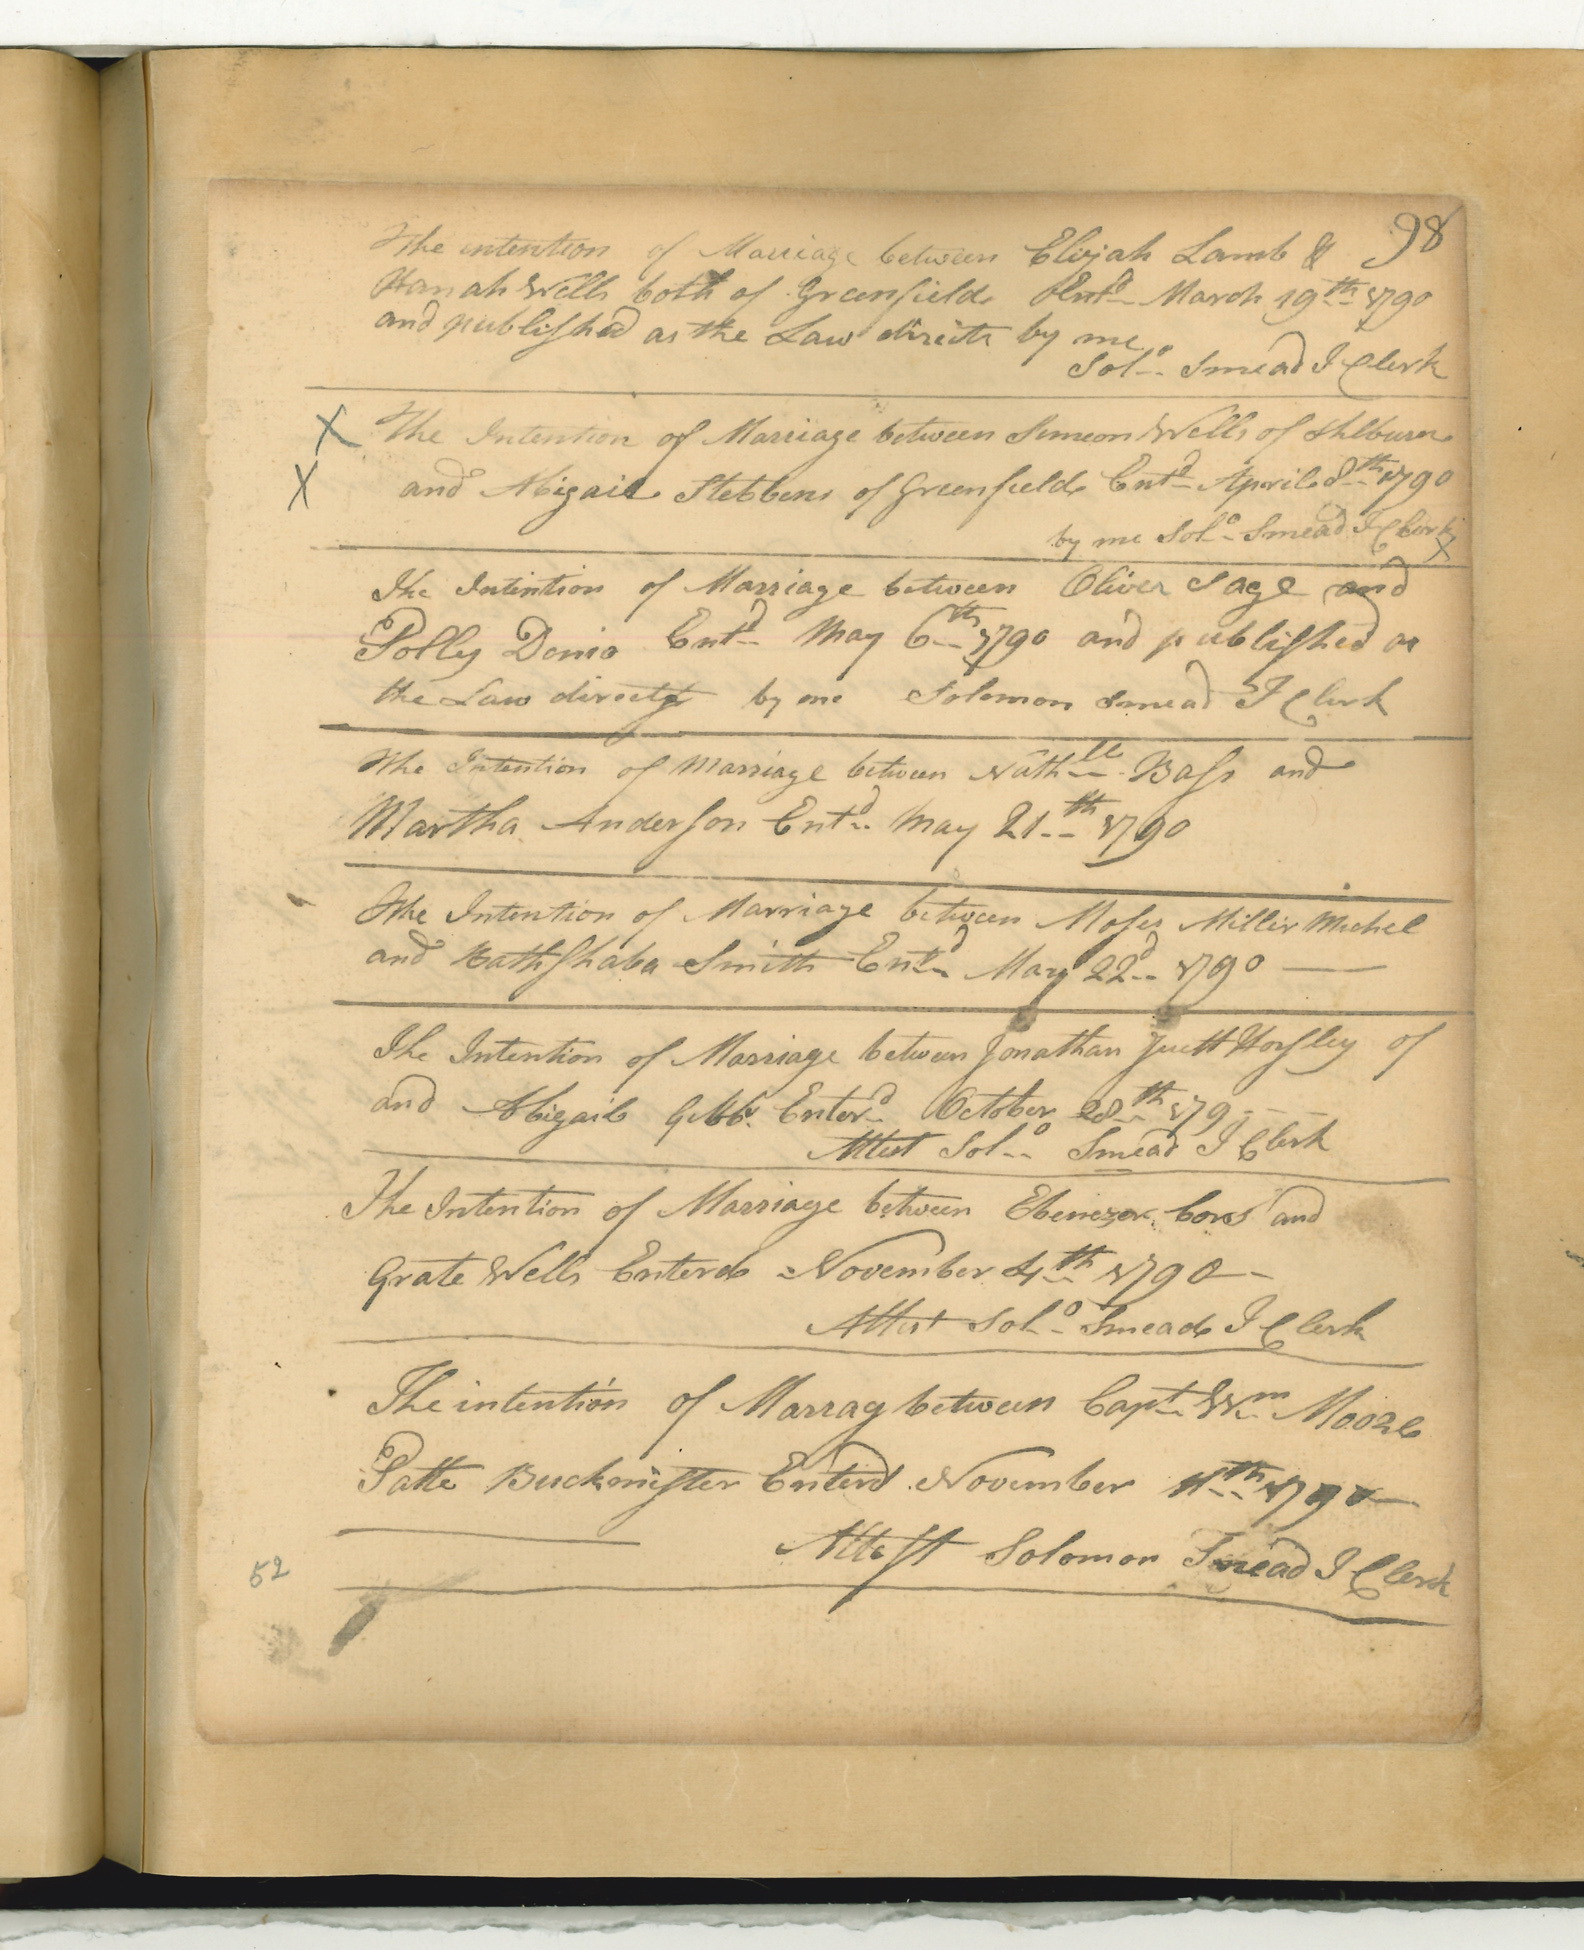 98
The intention of Marriage between Elijah Lamb &
Hanah Wells both of Greenfield Entd March 19th 1790
and published as the Law directs by me
Solo Smead T Clerk
X The Intention of Marriage between Simeon Wells of Shelburn
X and Abigail Stebbens of Greenfield Entd April 8th 1790
by me Solo Smead T Clerk
X
The Intention of Marriage between Oliver Sage and
Polly Donio Entd May 6th 1790 and published as
the Law directs by me Solomon Smead T Clerk
The Intention of Marriage between Nathll Bass and
Martha Anderson Entd May 21th 1790
The Intention of Marriage between Moses Miller Michel
and Bathshaba Smith Entd May 22d 1790
The Intention of Marriage between Jonathan Juett Horsley of
and Abigail Gibbs Enterd October 28th 179
Attest Solo Smead T Clerk
The Intention of Marriage between Ebenezer and
Grate Wells Enterd November 4th 1790
Attest Solo Smead T Clerk
The intention of Marrag between Capt Wm Moore
Patte Buckminster Enterd November 11th 1790
Attest Solomon Smead T Clerk
52